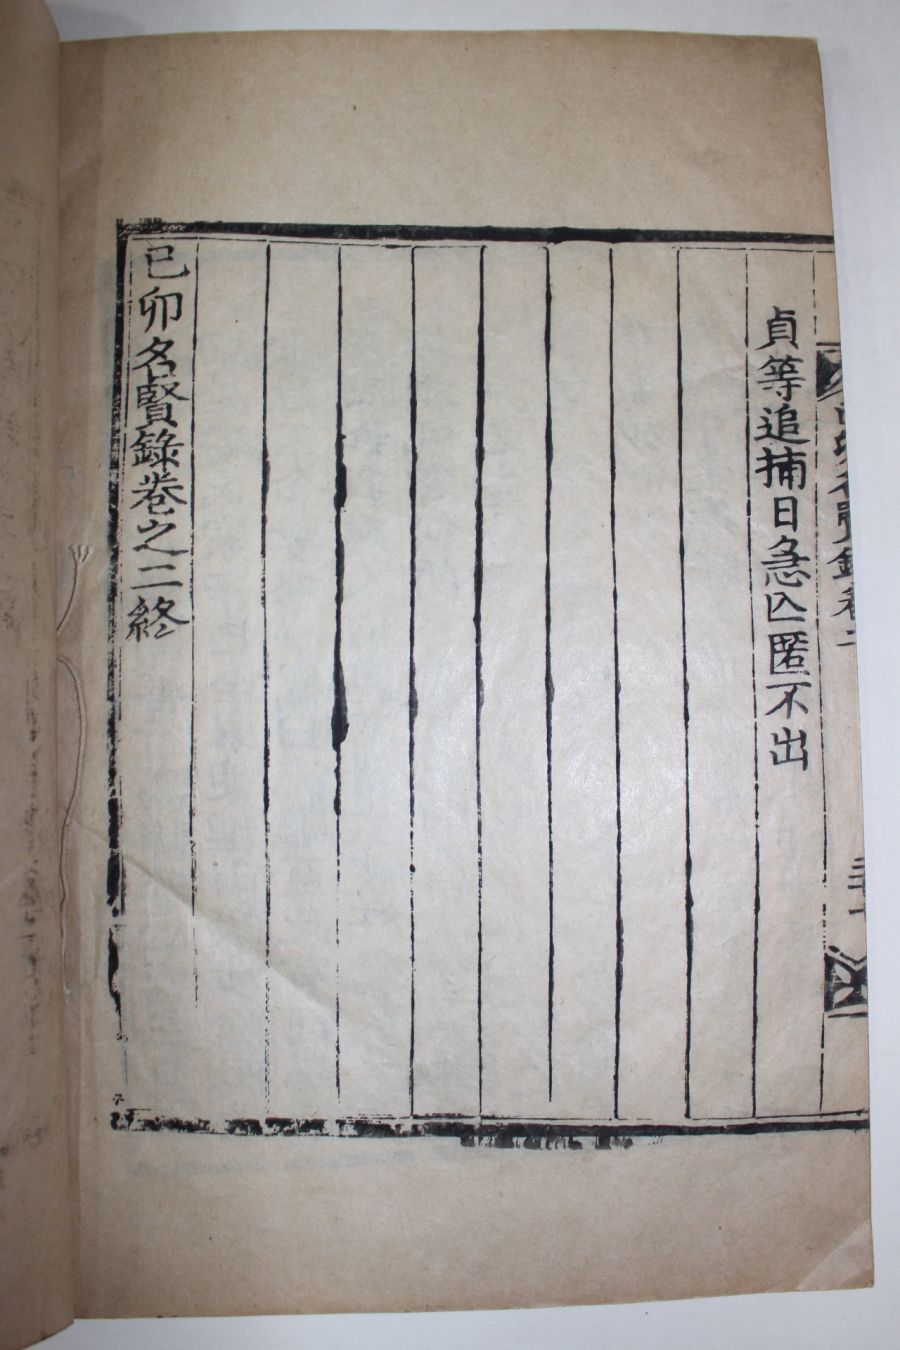 貞等追捕日急亾匿不出
己卯名賢錄卷之二終